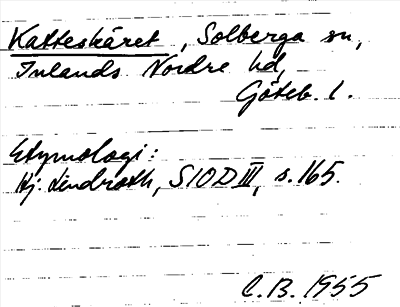 Katteskäret, Solberga sn,
Inlands Nordre hd,
Göteb. l.
Etymologi:
Hj. Lindroth, SIOD III, s. 165.
C.B. 1955